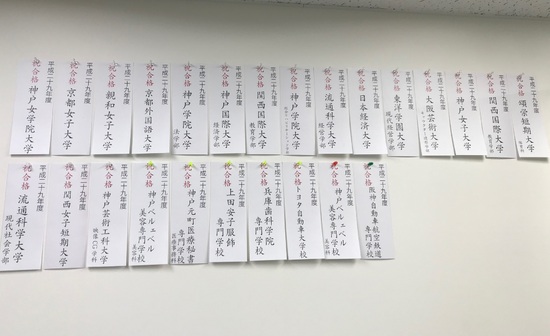 平成二十九年度
祝合格
頌栄短期大学
平成二十九年度
祝合格
関西国際大学
教育学部
平成二十九年度
祝合格
神戸女子大学
平成二十九年度
祝合格
大阪芸術大学
平成二十九年度
祝合格
東洋学園大学
現代経営学部
平成二十九年度
祝合格
日本経済大学
平成二十九年度
祝合格
流通科学大学
経営学部
平成二十九年度
祝合格
神戸学院大学
平成二十九年度
祝合格
関西国際大学
教育学部
平成二十九年度
祝合格
神戸国際大学
経済学部
平成二十九年度
祝合格
神戸学院大学
法学部
平成二十九年度
祝合格
京都外国語大学
平成二十九年度
祝合格
親和女子大学
平成二十九年度
祝合格
京都女子大学
平成二十九年度
祝合格
神戸女学院大学
平成二十九年度
祝合格
阪神自動車航空鉄道
専門学校
平成二十九年度
祝合格
神戸ベルェベル
美容専門学校
美容科
平成二十九年度
祝合格
トヨタ自動車大学校
平成二十九年度
祝合格
兵庫歯科学院
専門学校
平成二十九年度
祝合格
上田安子服飾
専門学校
平成二十九年度
祝合格
神戸元町医療秘書
専門学校
医療事務科
平成二十九年度
祝合格
神戸ベルェベル
美容専門学校
美容科
平成二十九年度
祝合格
神戸芸術工科大学
映像CG学科
平成二十九年度
祝合格
関西女子短期大学
平成二十九年度
祝合格
流通科学大学
現代社会学部